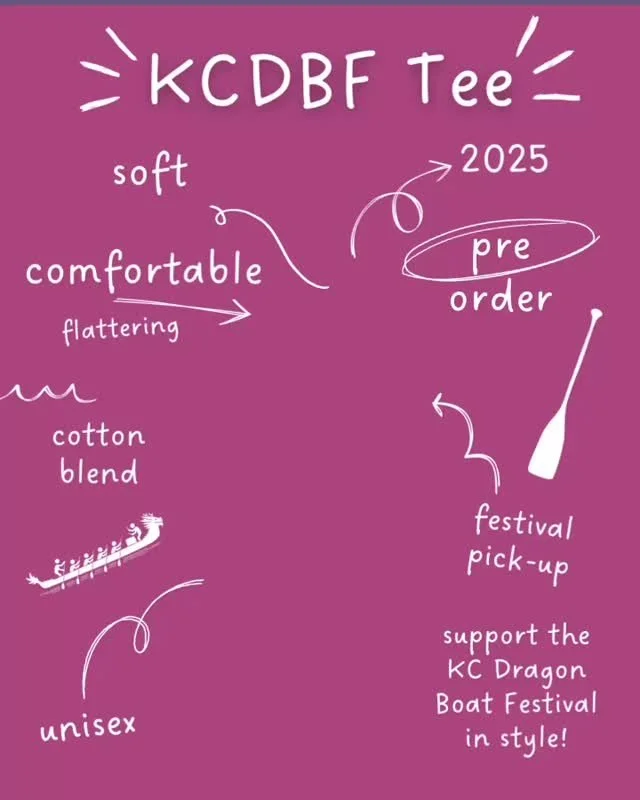 KCDBF Tee
soft
2025
comfortable
pre
order
flattering
cotton
blend
festival
pick-up
support the
KC Dragon
Boat Festival
in style!
unisex